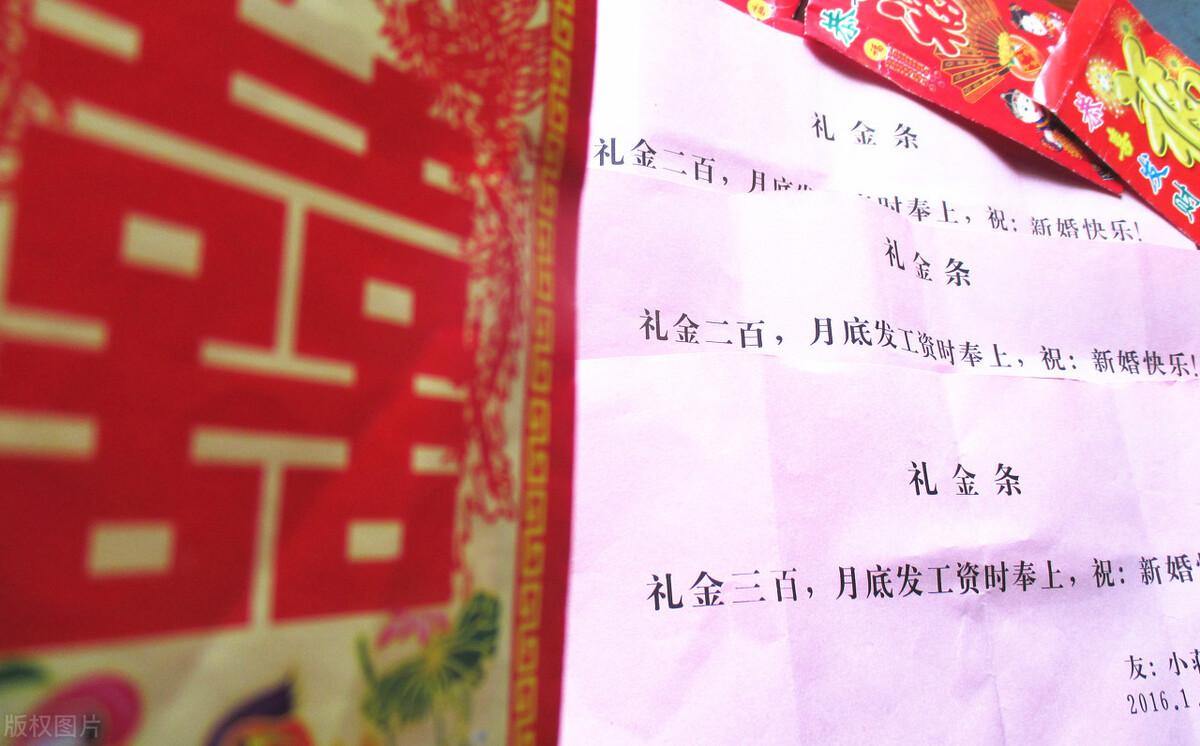 囍
恭
恭喜发财
礼金条
礼金二百，月底发 时奉上，祝：新婚快乐！
礼金条
礼金二百，月底发工资时奉上，祝：新婚快乐！
礼金条
礼金三百，月底发工资时奉上，祝：新婚
友：小
2016.1
版权图片